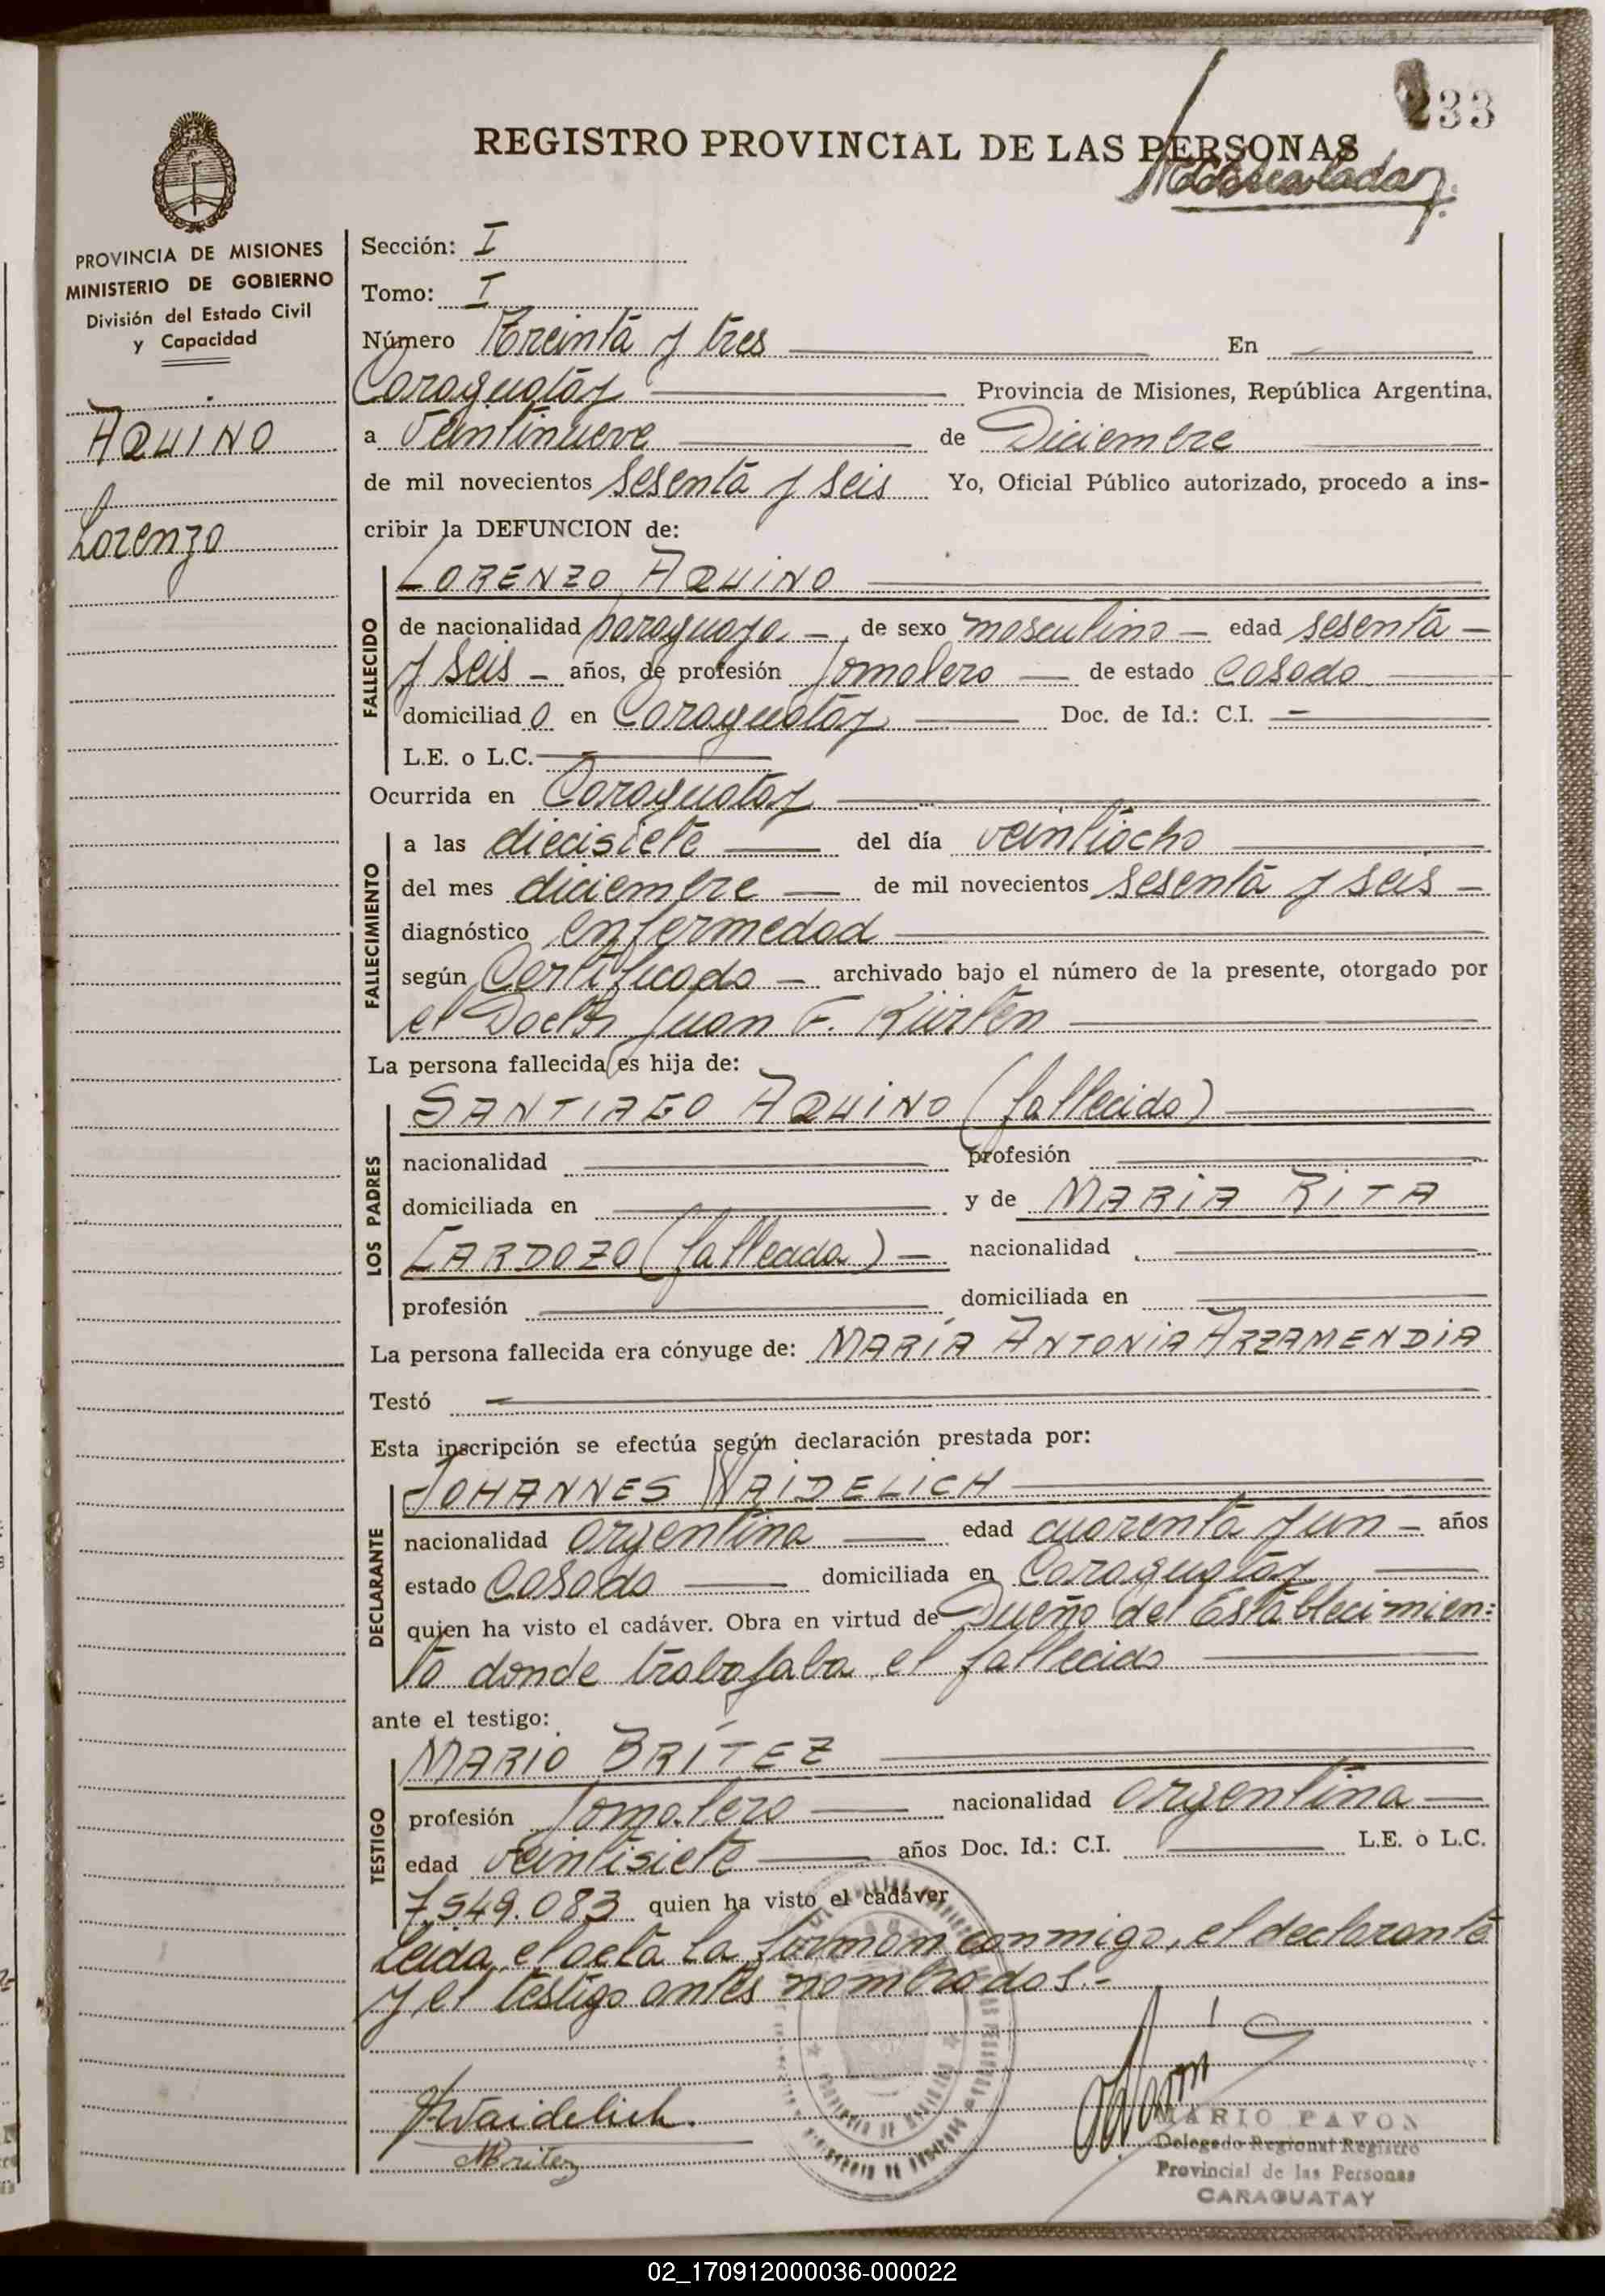 33
REGISTRO PROVINCIAL DE LAS PERSONAS
PROVINCIA DE MISIONES
MINISTERIO DE GOBIERNO
División del Estado Civil
y Capacidad
AQUINO
Lorenzo
Sección: I
Tomo: I
Número Treinta y tres En
Caraguatay Provincia de Misiones, República Argentina,
a Veintinueve de Diciembre
de mil novecientos sesenta y seis Yo, Oficial Público autorizado, procedo a ins-
cribir la DEFUNCION de:
FALLECIDO
LORENZO AQUINO
de nacionalidad paraguaya - de sexo masculino - edad sesenta -
y seis - años, de profesión Jornalero de estado Casado
domiciliado en Caraguatay Doc. de Id.: C.I. -
L.E. o L.C.
Ocurrida en Caraguatay
FALLECIMIENTO
a las diecisiete del día veintiocho
del mes diciembre de mil novecientos sesenta y seis -
diagnóstico enfermedad
según Certificado - archivado bajo el número de la presente, otorgado por
el Doctor Juan F. Kürten
La persona fallecida es hija de:
LOS PADRES
SANTIAGO AQUINO (fallecido)
nacionalidad profesión
domiciliada en y de MARIA RITA
CARDOZO (fallecida) - nacionalidad
profesión domiciliada en
La persona fallecida era cónyuge de: MARÍA ANTONIA ARZAMENDIA
Testó
Esta inscripción se efectúa según declaración prestada por:
DECLARANTE
JOHANNES WAIDELICH
nacionalidad argentina edad cuarenta y un - años
estado Casado domiciliada en Caraguatay
quien ha visto el cadáver. Obra en virtud de Dueño del Establecimien=
to donde trabajaba el fallecido
ante el testigo:
TESTIGO
MARIO BRÍTEZ
profesión Jornalero nacionalidad argentina
edad veintisiete años Doc. Id.: C.I. L.E. o L.C.
7.549.083 quien ha visto el cadáver
Leida el acta la firman conmigo, el declarante
y el testigo antes nombrados.-
J. Waidelich.
MBritez
MARIO PAVON
Delegado Regional Registro
Provincial de las Personas
CARAGUATAY
02_170912000036-000022